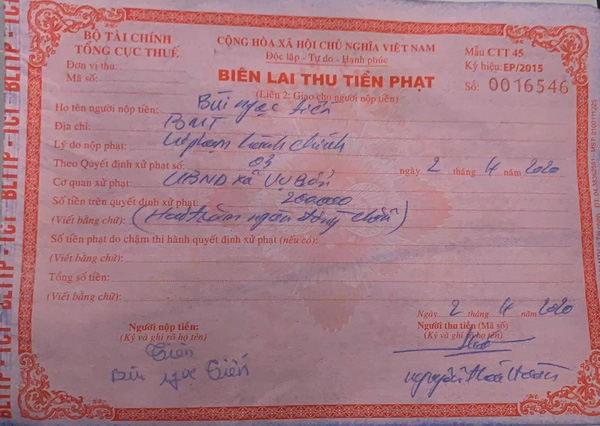 BỘ TÀI CHÍNH
TỔNG CỤC THUẾ
Đơn vị thu:
Mã số:
CỘNG HÒA XÃ HỘI CHỦ NGHĨA VIỆT NAM
Độc lập - Tự do - Hạnh phúc
BIÊN LAI THU TIỀN PHẠT
(Liên 2: Giao cho người nộp tiền)
Mẫu CTT 45
Ký hiệu: EP/2015
Số: 0016546
Họ tên người nộp tiền: Bùi ngọc Tiến
Địa chỉ: BMT
Lý do nộp phạt: Vi phạm hành chính
Theo Quyết định xử phạt số: 03 ngày 2 tháng 4 2020
Cơ quan xử phạt: UBND xã Vụ Bổn
Số tiền trên quyết định xử phạt: 200000
(Viết bằng chữ): (Hai trăm ngàn đồng chẵn)
Số tiền phạt do chậm thi hành quyết định xử phạt (nếu có):
(Viết bằng chữ):
Tổng số tiền:
(Viết bằng chữ):
Ngày 2 tháng 4 2020
Người nộp tiền:
(Ký và ghi rõ họ tên)
Tiến
Bùi ngọc Tiến
Người thu tiền (Mã số)
(Ký và ghi rõ họ tên)
nguyễn
BLTTP - TCT - BLTTP - TCT - BLTTP - TCT